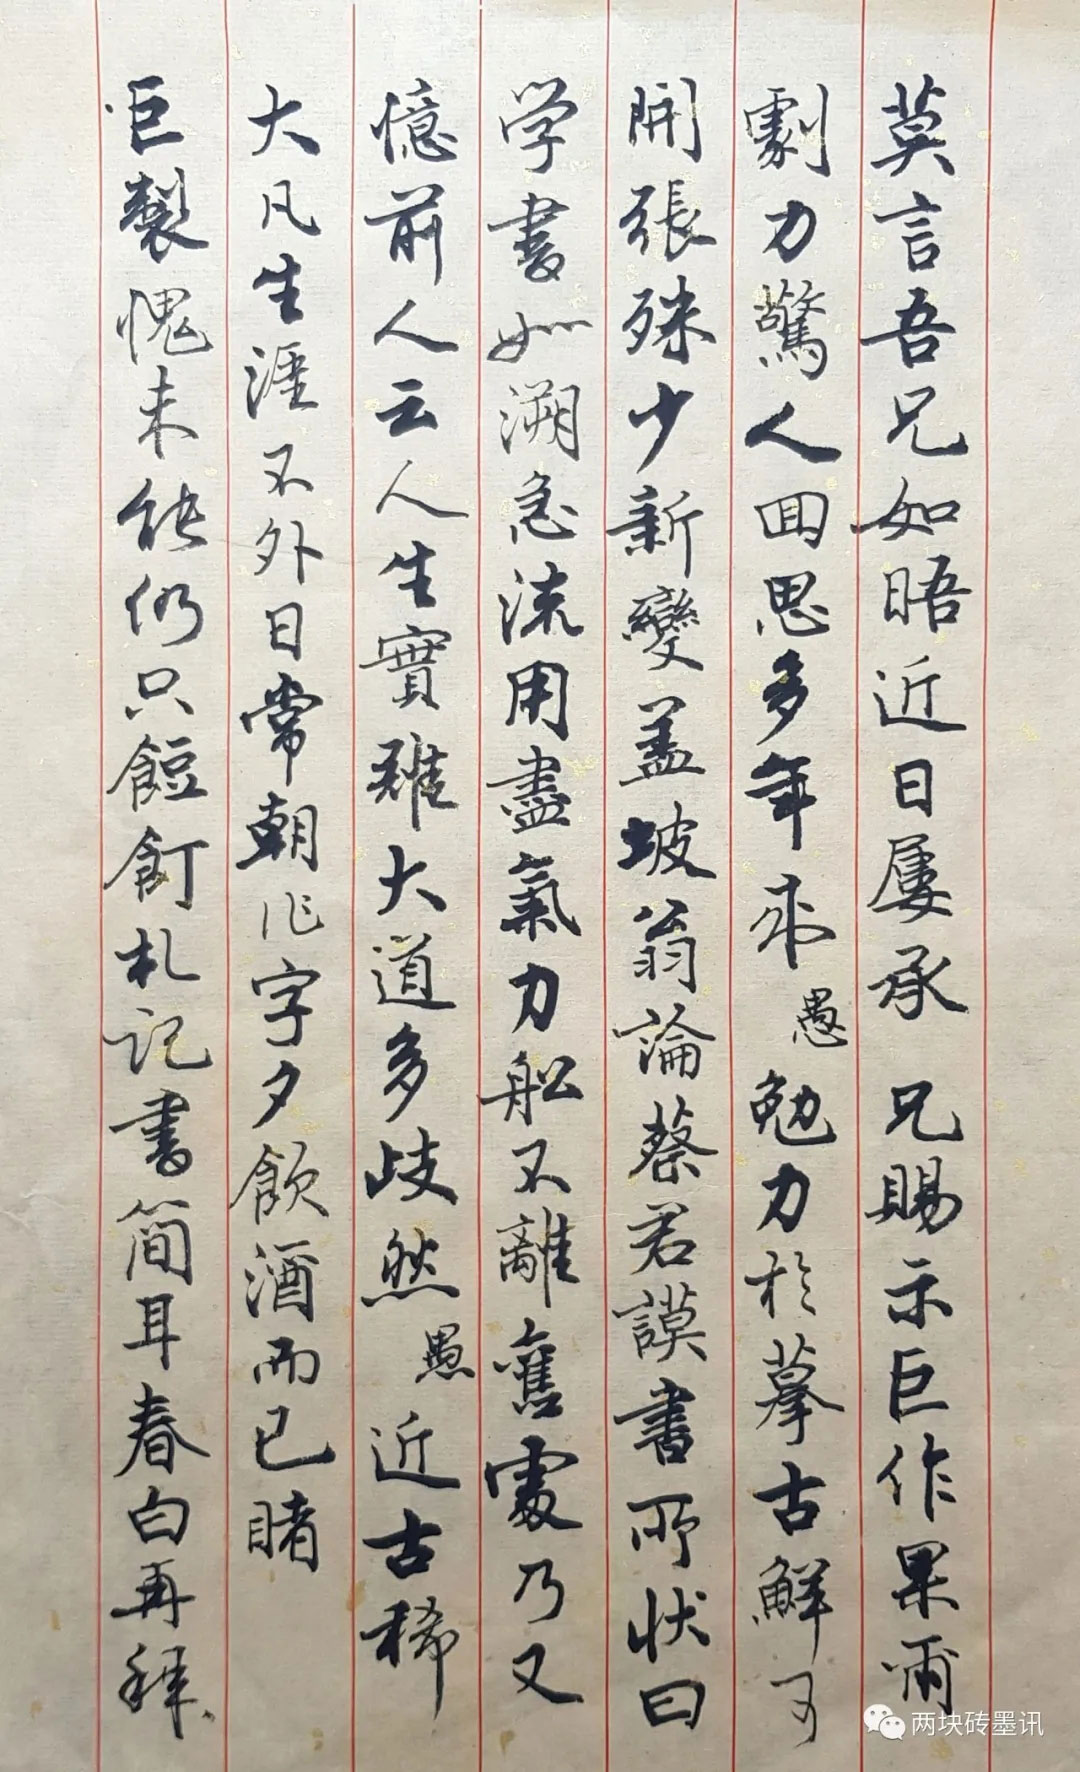 莫言吾兄如晤近日屢承兄賜示巨作果爾
劇力驚人回思多年來愚勉力於摹古鮮可
開張殊少新變蓋坡翁論蔡君謨書所狀曰
学書如溯急流用盡氣力船不離舊處乃又
憶前人云人生實難大道多歧然愚近古稀
大凡生涯不外日常朝作字夕飲酒而已睹
巨製愧未能仍只餖飣札記書簡耳春白再拜
两块砖墨讯